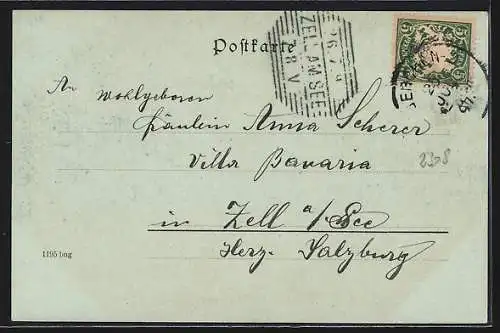 Postkarte
ZELL AM SEE
An
wohlgeboren
Fräulein Anna Scherer
Villa Bavaria
2308
in Zell a/See
Herz. Salzburg
1195 bng